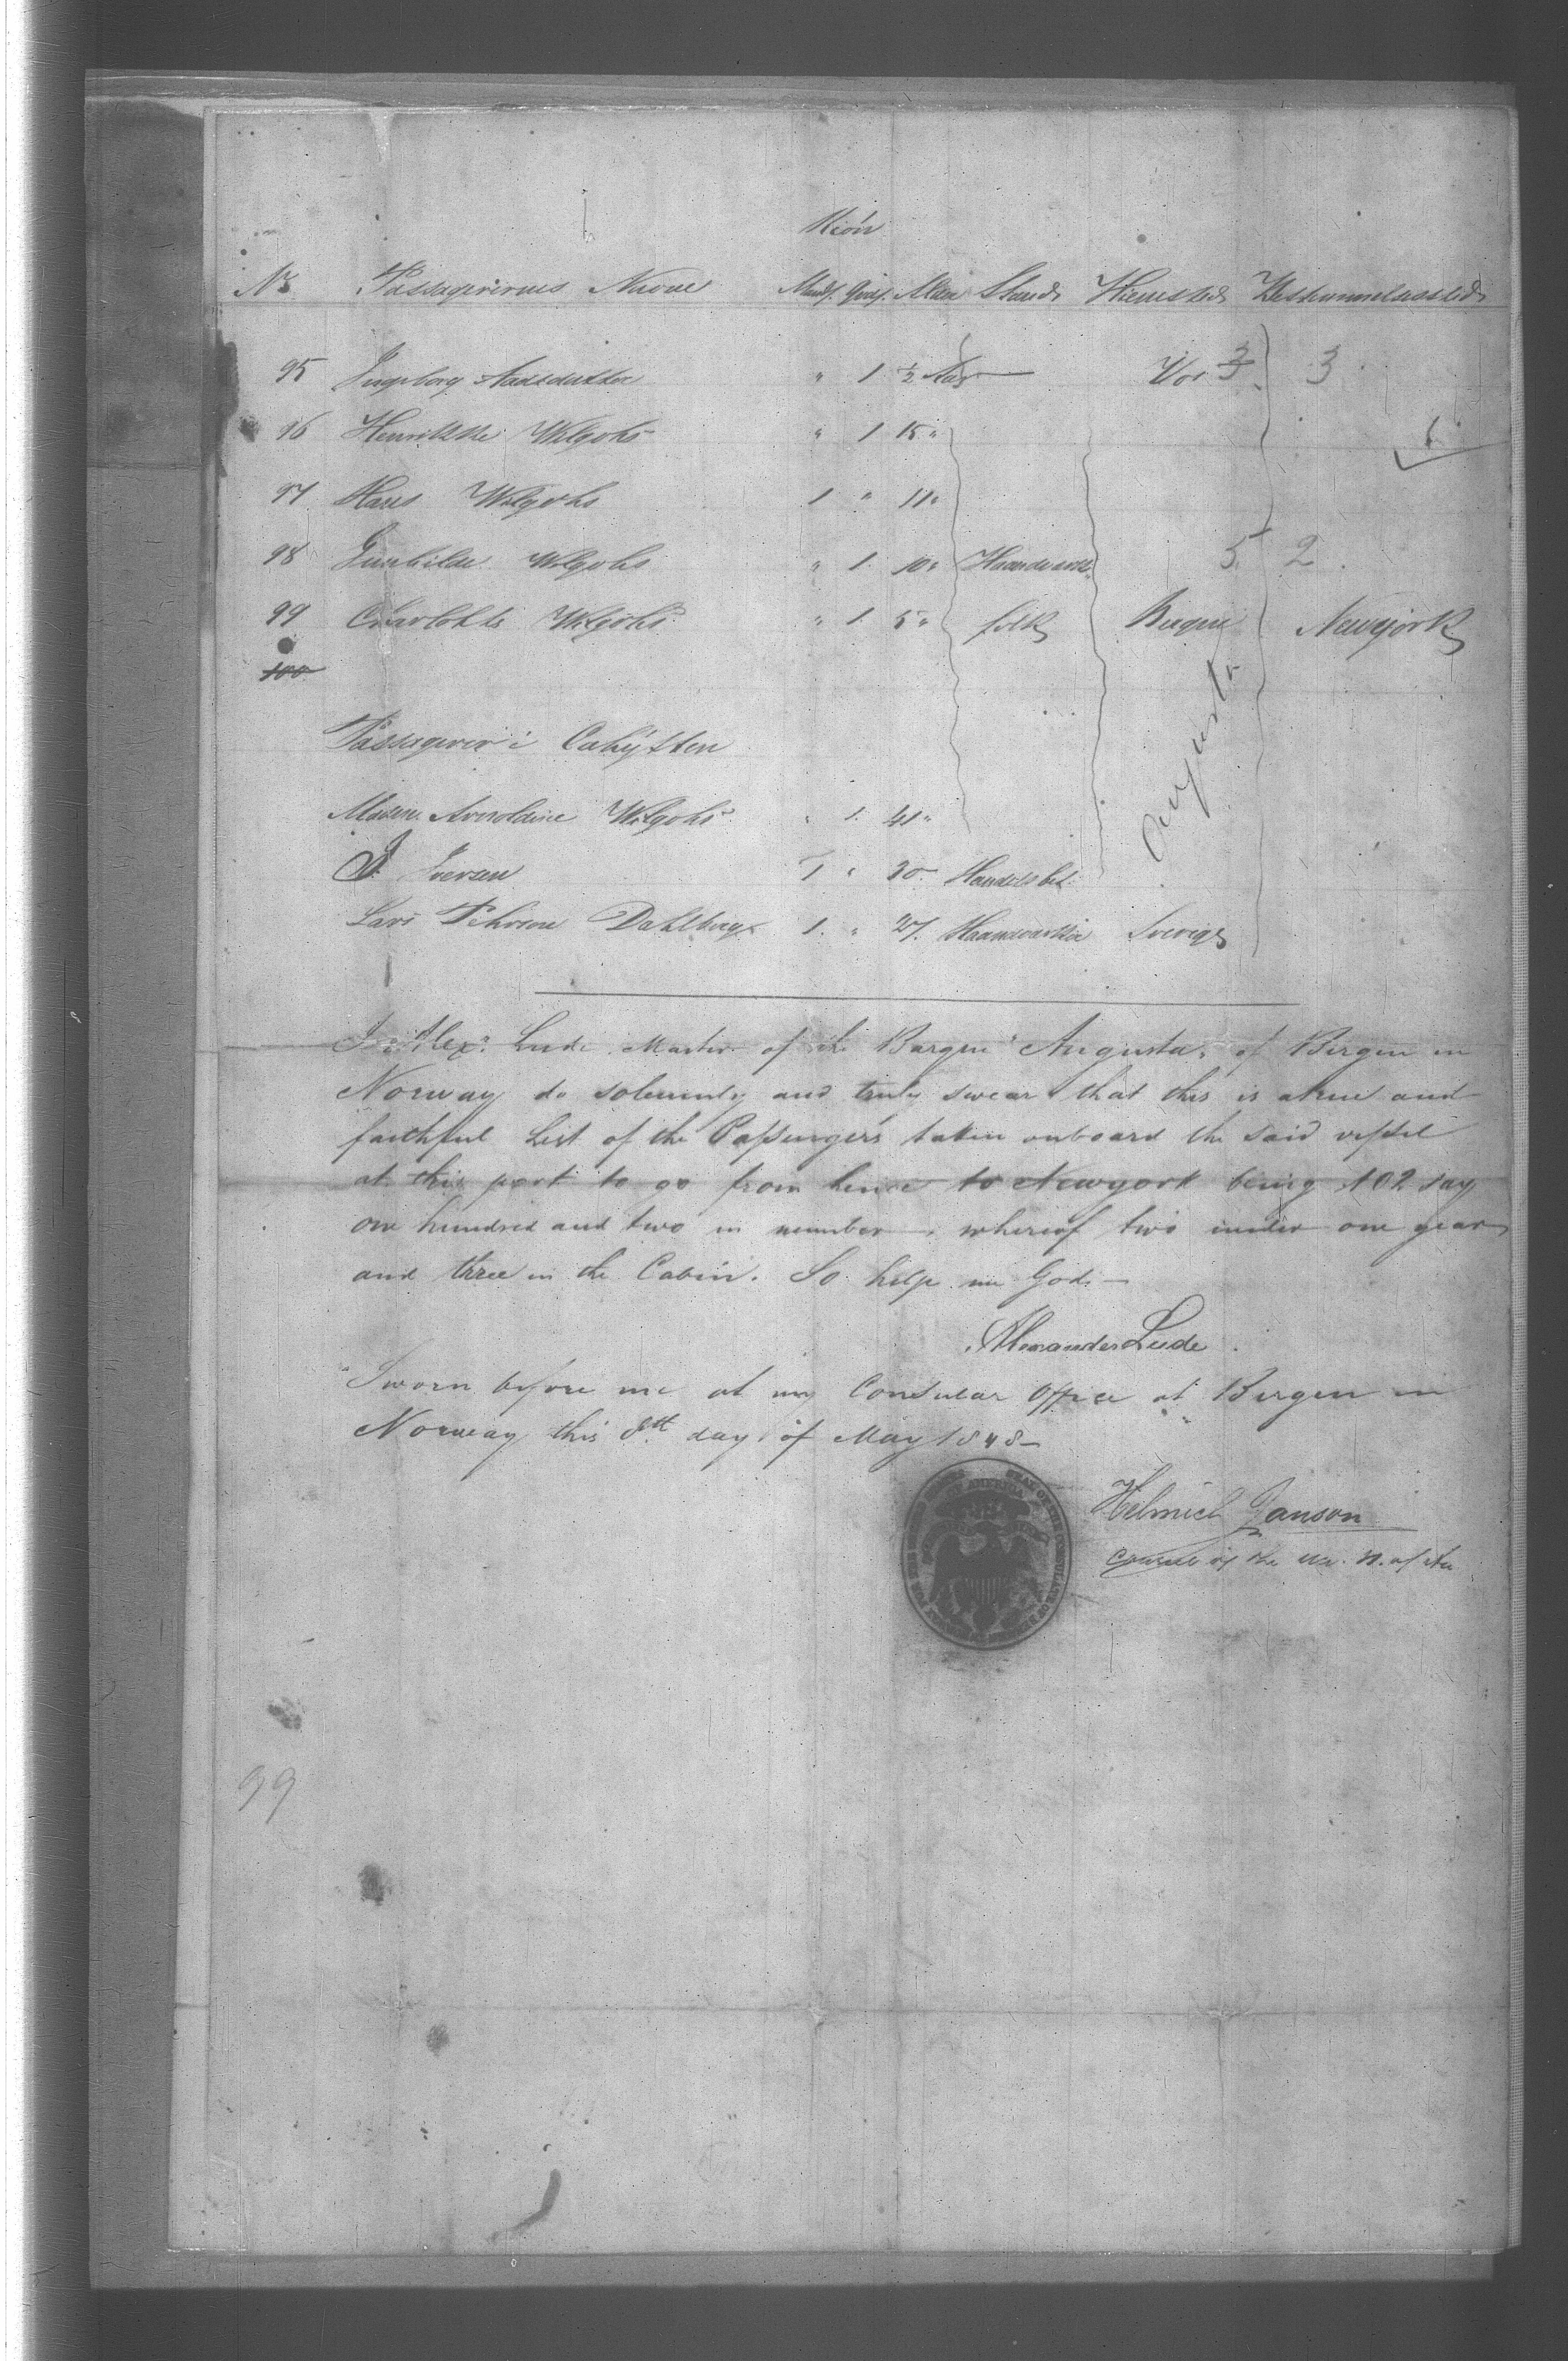 Kión
No Passagerernes Navne Mandk. Qvindk. Alder Stand Hiemsted Bestemmelsessted
95 Ingeborg Aadsdatter " 1 ½ Aar Vos 3 3
96 Henrikke Wilgohs " 1 15 "
97 Hans Wilgohs 1 " 11 "
98 Gunhilde Wilgohs " 1. 10 " Haandværks 5 2
99 Charlotte Wilgohs " 1. 5 " folk Bergen Newyork
100
Augusta
Passagerer i Cahÿtten
Madm. Arnoldine Wilgohs " 1. 41 "
J. Iversen 1 " 30 Handelsbet.
Lars Pehrson Dahlberg 1. " 27. Haandværker Sverige
I Alexr. Lude Master of the Barque "Augusta" of Bergen in
Norway do solemnly and truly swear that this is a true and
faithful List of the Passengers taken onboard the said vessel
at this port to go from hence to Newyork being 102 say
one hundred and two in number, whereof two under one year
and three in the Cabin. So help me God. —
Alexander Lude.
Sworn before me at my Consular Office at Bergen in
Norway this 8th day of May 1848 —
Helmich Janson
Consul of the U. S. of Am
SEAL OF THE CONSULATE OF THE UNITED STATES OF AMERICA
99